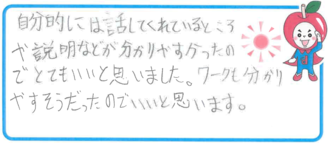 自分的には話してくれているところ
や説明などが分かりやすかったの
でとてもいいと思いました。ワークも分かり
やすそうだったのでいいと思います。